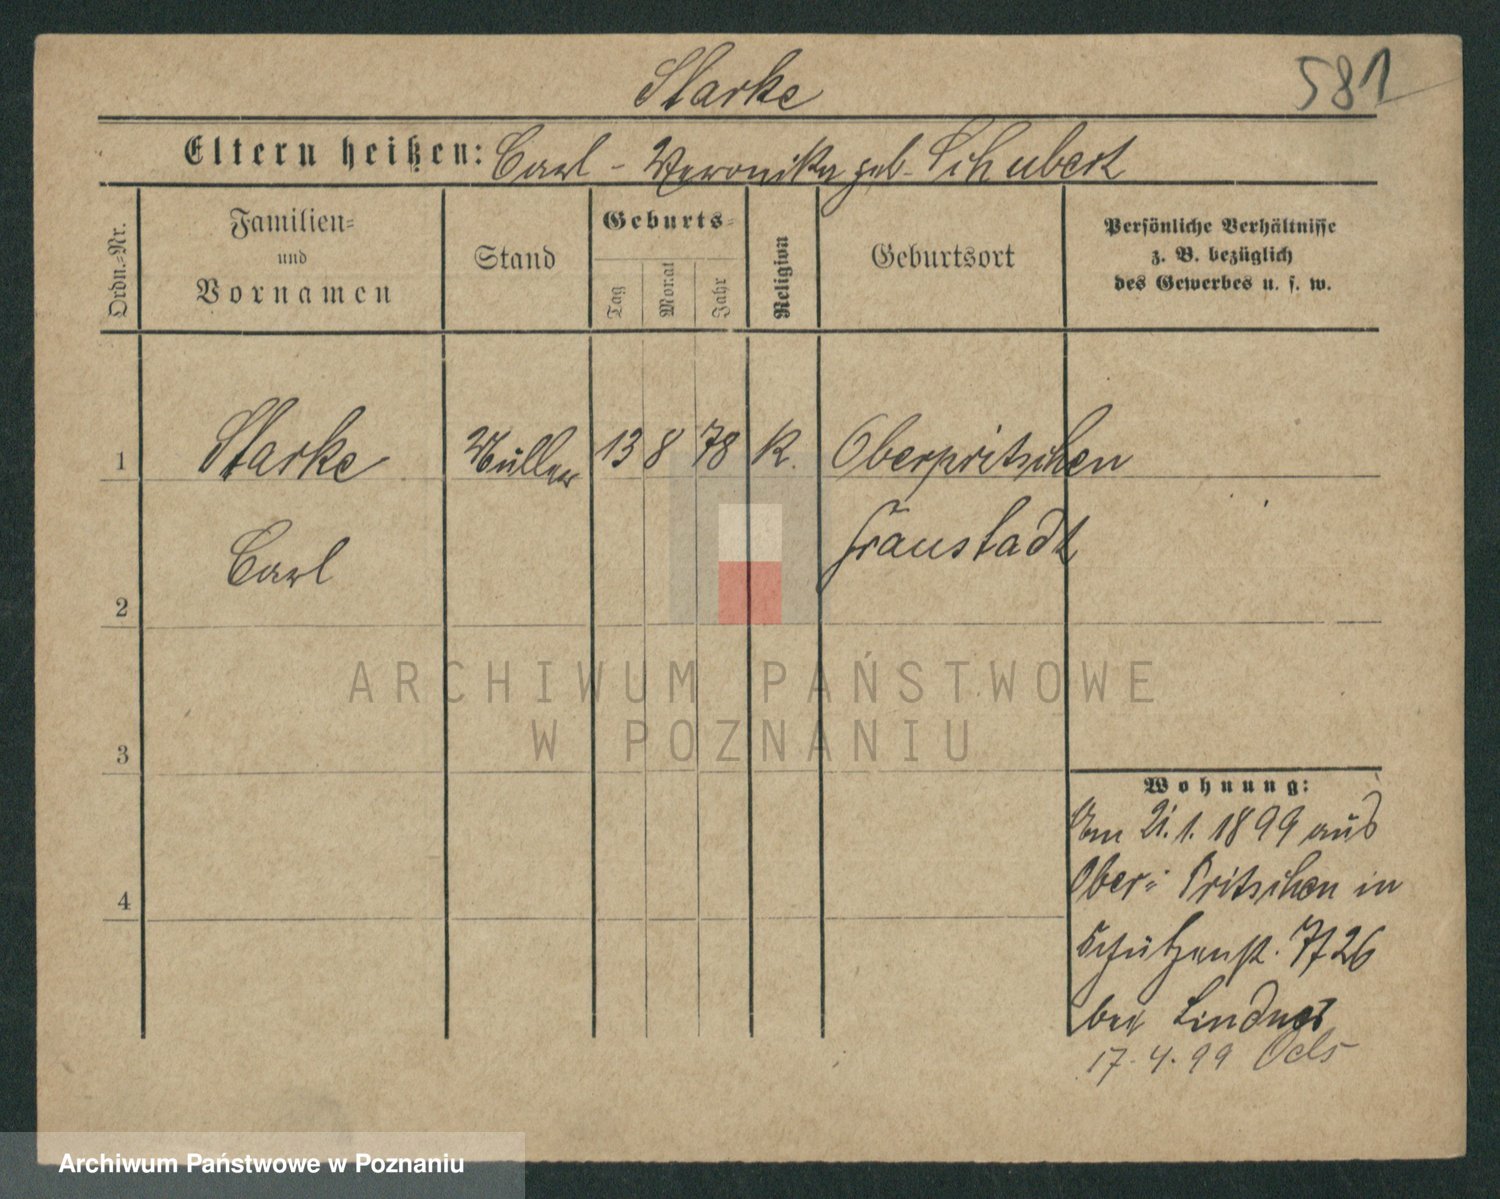 Starke
581
Eltern heißen: Carl - Veronika geb. Schubert
Ordn.-Nr.
Familien-
und
Vornamen
Stand
Geburts-
Tag
Monat
Jahr
Religion
Geburtsort
Persönliche Verhältnisse
z. B. bezüglich
des Gewerbes u. s. w.
1 Starke Müller 13 8 78 K. Oberpritschen
Fraustadt
Carl
2
ARCHIWUM PAŃSTWOWE
W POZNANIU
3
Wohnung:
Am 21.1.1899 aus
Ober- Pritschen in
4
Schützenst. 26
bei Lindner
17.4.99 Oels
Archiwum Państwowe w Poznaniu